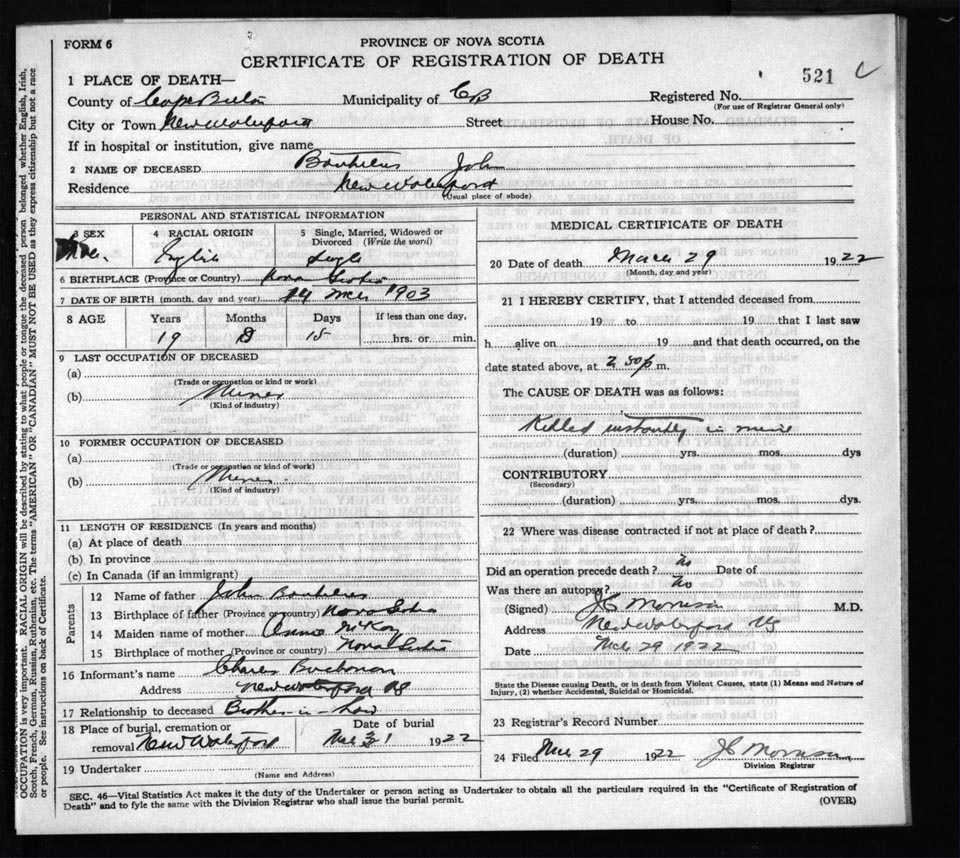 FORM 6
PROVINCE OF NOVA SCOTIA
CERTIFICATE OF REGISTRATION OF DEATH
521
1 PLACE OF DEATH—
County of Cape Breton Municipality of CB Registered No.
(For use of Registrar General only)
City or Town New Waterford Street House No.
If in hospital or institution, give name
2 NAME OF DECEASED John
Residence New Waterford
(Usual place of abode)
PERSONAL AND STATISTICAL INFORMATION
3 SEX 4 RACIAL ORIGIN 5 Single, Married, Widowed or Divorced (Write the word)
English Single
6 BIRTHPLACE (Province or Country) Nova Scotia
7 DATE OF BIRTH (month, day and year) 14 Mch 1903
8 AGE Years Months Days If less than one day,
19 15 hrs. or min.
9 LAST OCCUPATION OF DECEASED
(a)
(Trade or occupation or kind or work)
(b) Miner
(Kind of industry)
10 FORMER OCCUPATION OF DECEASED
(a)
(Trade or occupation or kind of work)
(b) Miner
(Kind of industry)
11 LENGTH OF RESIDENCE (In years and months)
(a) At place of death
(b) In province
(c) In Canada (if an immigrant)
Parents
12 Name of father John
13 Birthplace of father (Province or country) Nova Scotia
14 Maiden name of mother Annie McKay
15 Birthplace of mother (Province or country) Nova Scotia
16 Informant's name Charles Buchanan
Address New Waterford NS
17 Relationship to deceased Brother-in-Law
18 Place of burial, cremation or removal New Waterford
Date of burial Mch 31 1922
19 Undertaker
(Name and Address)
MEDICAL CERTIFICATE OF DEATH
20 Date of death March 29 1922
(Month, day and year)
21 I HEREBY CERTIFY, that I attended deceased from
19 to 19 that I last saw
h alive on 19 and that death occurred, on the
date stated above, at 2 30 p m.
The CAUSE OF DEATH was as follows:
Killed instantly in mine
(duration) yrs. mos. dys
CONTRIBUTORY
(Secondary)
(duration) yrs. mos. dys.
22 Where was disease contracted if not at place of death?
Did an operation precede death? No Date of
Was there an autopsy? No
(Signed) JC Morrison M.D.
Address New Waterford NS
Date Mch 29 1922
State the Disease causing Death, or in death from Violent Causes, state (1) Means and Nature of
Injury, (2) whether Accidental, Suicidal or Homicidal.
23 Registrar's Record Number
24 Filed Mch 29 1922 JC Morrison
Division Registrar
SEC. 46—Vital Statistics Act makes it the duty of the Undertaker or person acting as Undertaker to obtain all the particulars required in the "Certificate of Registration of
Death" and to fyle the same with the Division Registrar who shall issue the burial permit.
(OVER)
OCCUPATION is very important. RACIAL ORIGIN will be described by stating to what people or tongue the deceased person belonged whether English, Irish,
Scotch, French, German, Russian, Ruthenian, etc. The terms "AMERICAN" OR "CANADIAN" MUST NOT BE USED as they express citizenship but not a race
or people. See instructions on back of Certificate.